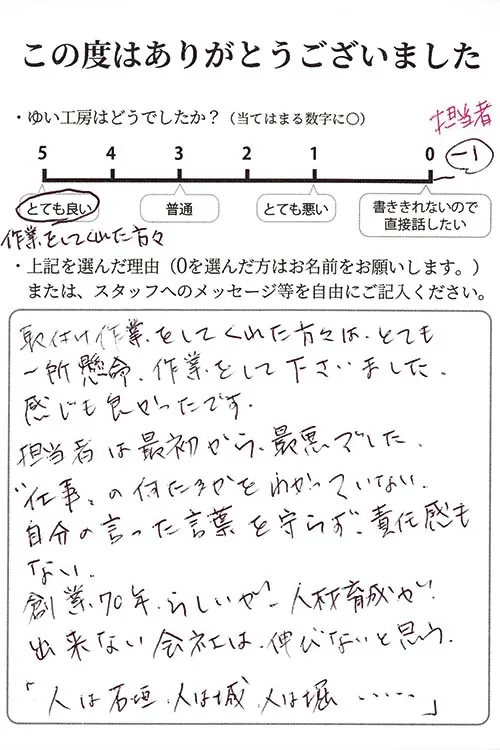 この度はありがとうございました
・ゆい工房はどうでしたか？（当てはまる数字に〇）
担当者
5 4 3 2 1 0 -1
とても良い 普通 とても悪い 書ききれないので直接話したい
作業をしてくれた方々
・上記を選んだ理由（0を選んだ方はお名前をお願いします。）
または、スタッフへのメッセージ等を自由にご記入ください。
取付け作業をしてくれた方々は、とても
一所懸命、作業をして下さいました。
感じも良かったです。
担当者は最初から、最悪でした。
"仕事、の何たるかをわかっていない。
自分の言った言葉を守らず、責任感も
ない。
創業70年、らしいが、人材育成が
出来ない会社は、伸びないと思う。
「人は石垣、人は城、人は堀 ……」